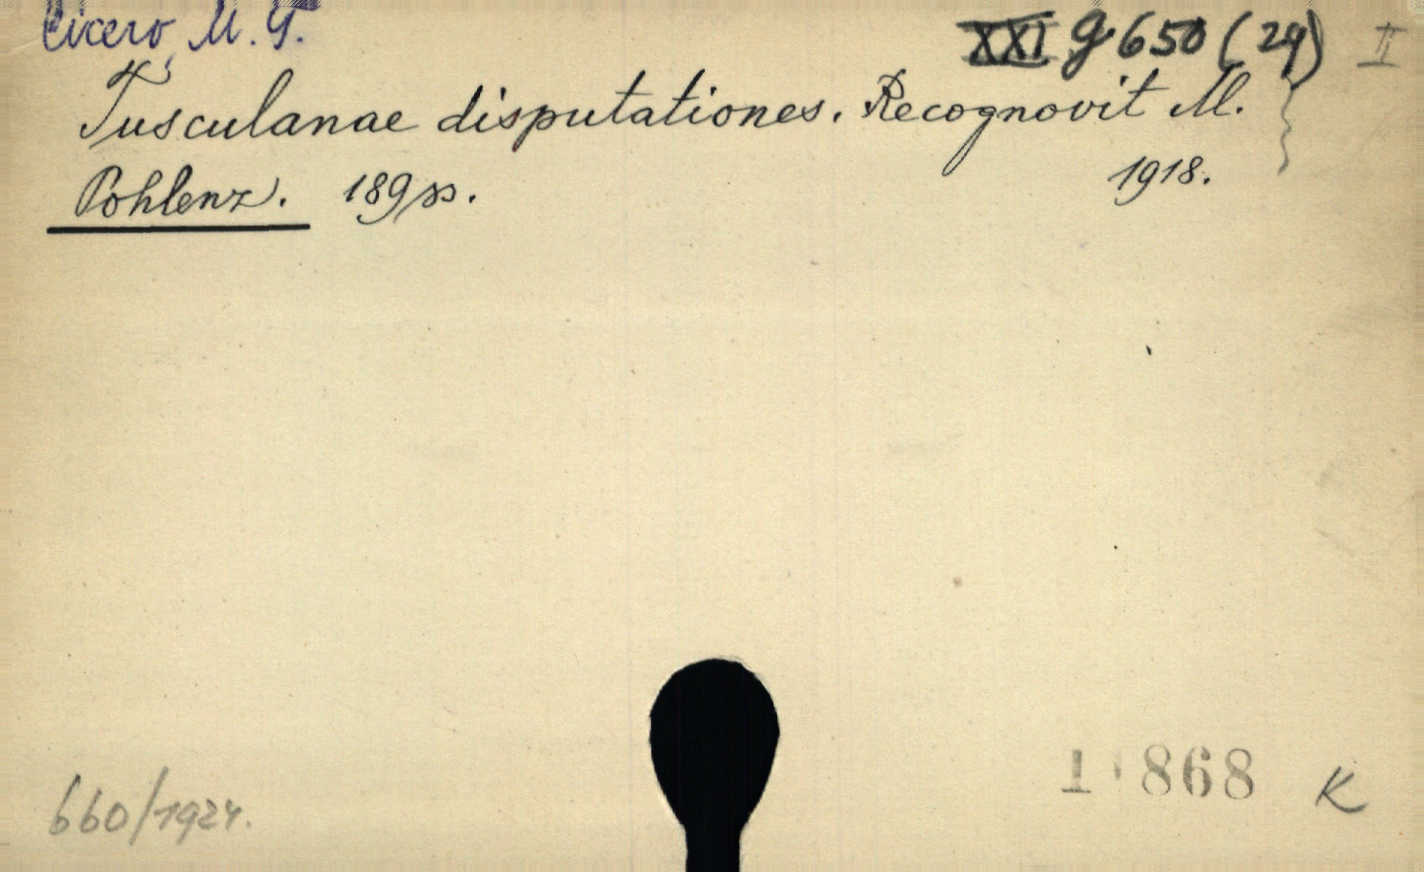 Cicero, M. T.
XXI g 650 (24) II
Tusculanae disputationes. Recognovit M.
Pohlenz. 189 ss. 1918.
660/1924.
1 868 K